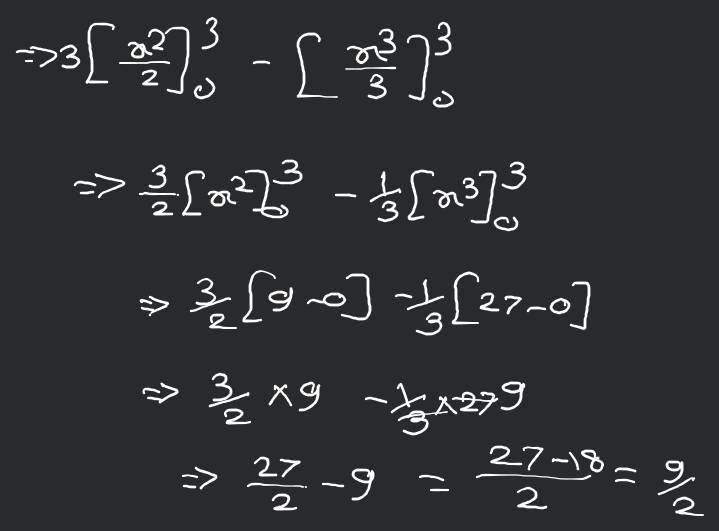 =>3[x²/2]₀³ - [x³/3]₀³
=> 3/2 [x²]₀³ - 1/3 [x³]₀³
=> 3/2 [9-0] - 1/3 [27-0]
=> 3/2 × 9 - 1/3 × 27 9
=> 27/2 - 9 = 27-18/2 = 9/2